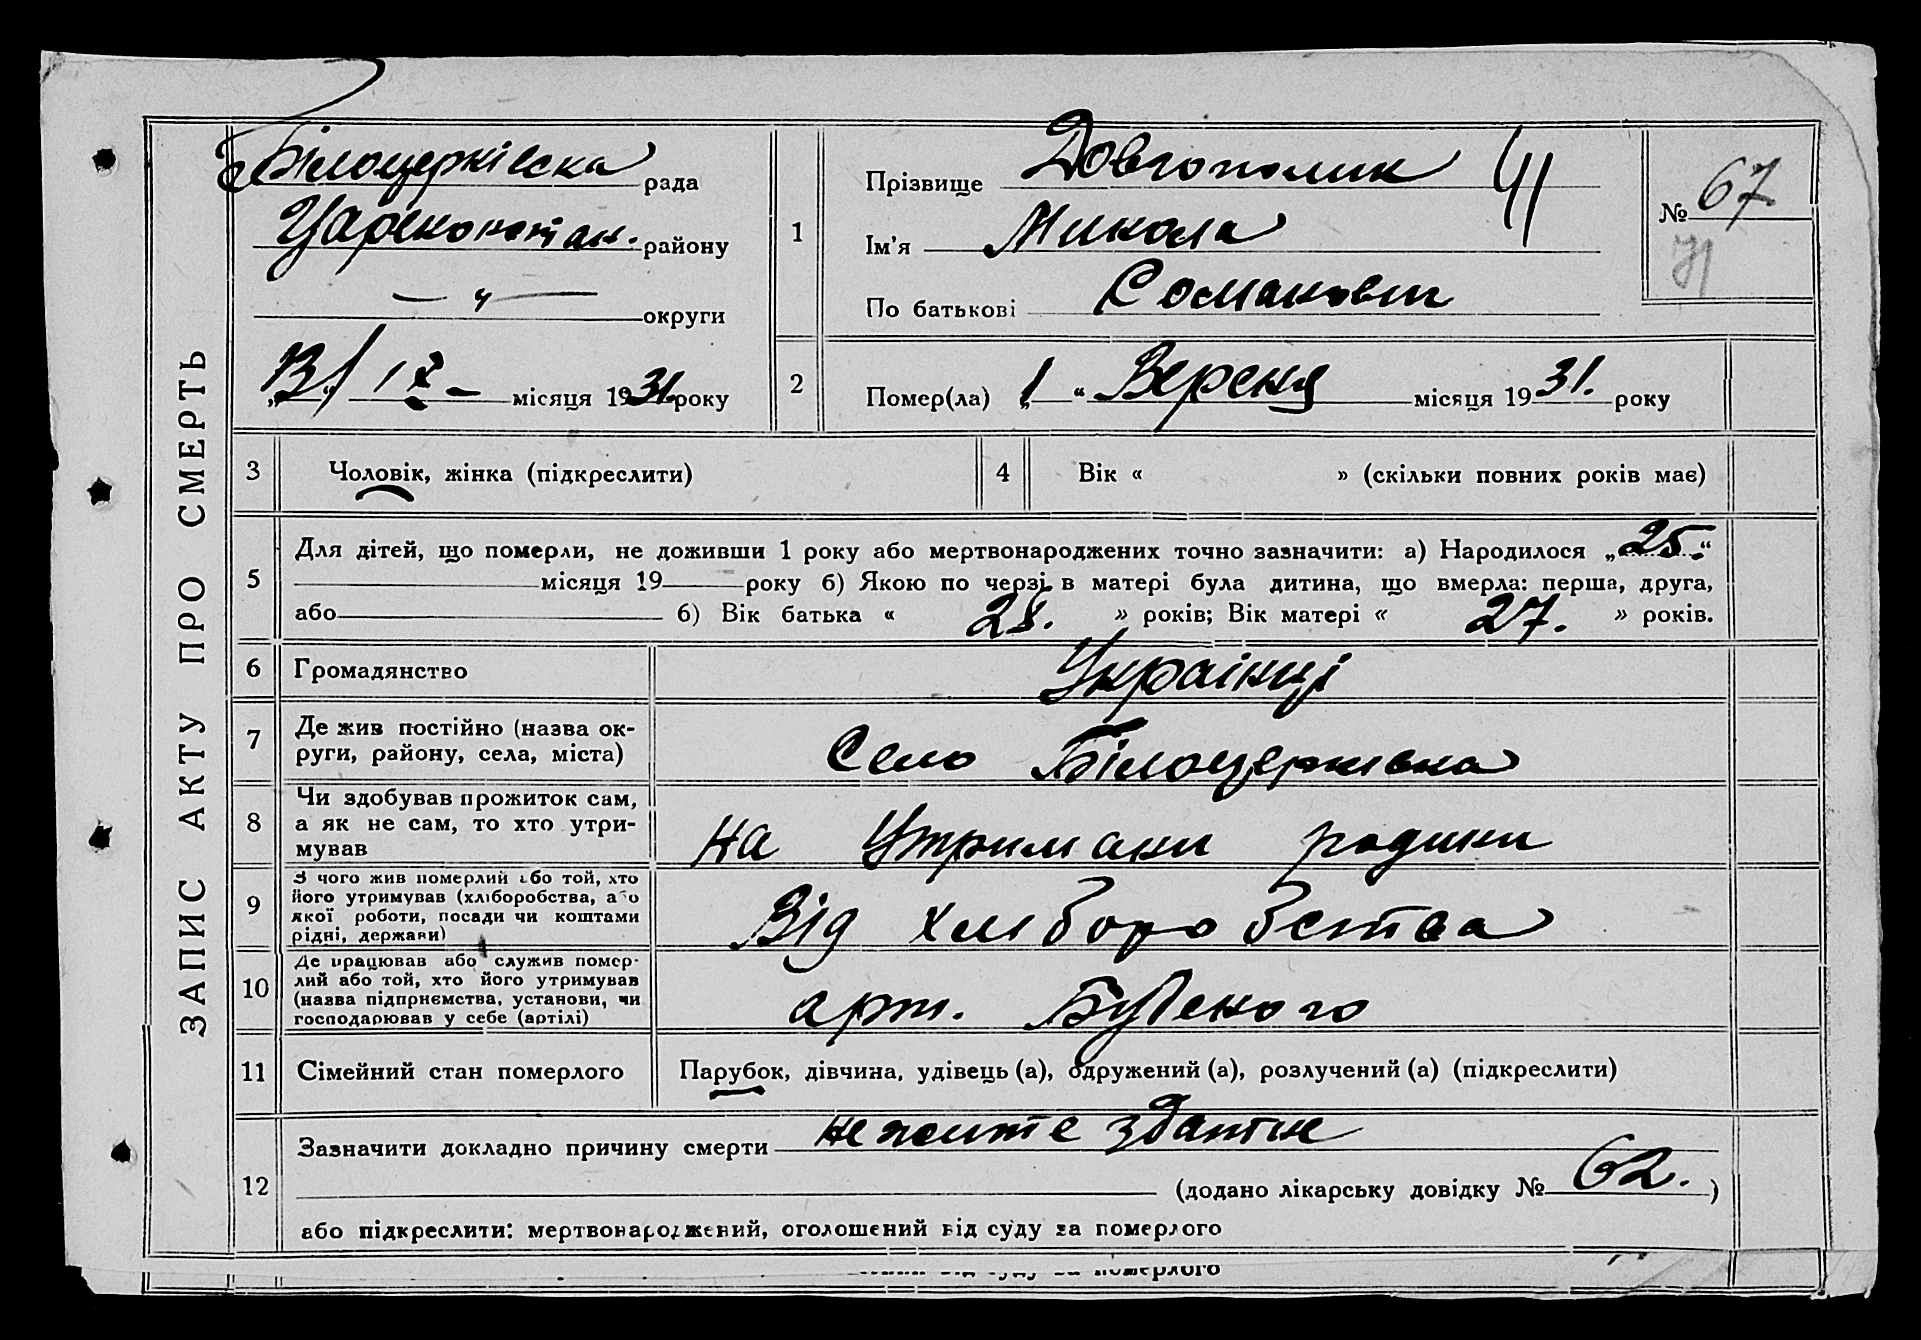 ЗАПИС АКТУ ПРО СМЕРТЬ
Білоцерківска рада
Царенконстан. району
— „ — округи
„13“ IX - місяця 1931. року
1
Прізвище Довгополик
Ім'я Микола
По батькові
№ 67
71
2
Помер(ла) „1“ Вересня місяця 1931. року
3 Чоловік, жінка (підкреслити)
4 Вік « » (скільки повних років має)
5 Для дітей, що померли, не доживши 1 року або мертвонароджених точно зазначити: а) Народилося „25.“
місяця 19 року б) Якою по черзі в матері була дитина, що вмерла: перша, друга,
або б) Вік батька « 28. » років; Вік матері « 27. » років.
6 Громадянство Українці
7 Де жив постійно (назва ок-
руги, району, села, міста)
Село Білоцерківка
8 Чи здобував прожиток сам,
а як не сам, то хто утри-
мував
на утримани родини
9 З чого жив померлий або той, хто
його утримував (хліборобства, або
якої роботи, посади чи коштами
рідні, держави)
Від хліборобства
10 Де працював або служив помер-
лий або той, хто його утримував
(назва підприємства, установи, чи
господарював у себе (артілі)
арт. Буденого
11 Сімейний стан померлого Парубок, дівчина, удівець (а), одружений (а), розлучений (а) (підкреслити)
12 Зазначити докладно причину смерти
(додано лікарську довідку № 62. )
або підкреслити: мертвонароджений, оголошений від суду за померлого
від суду за померлого